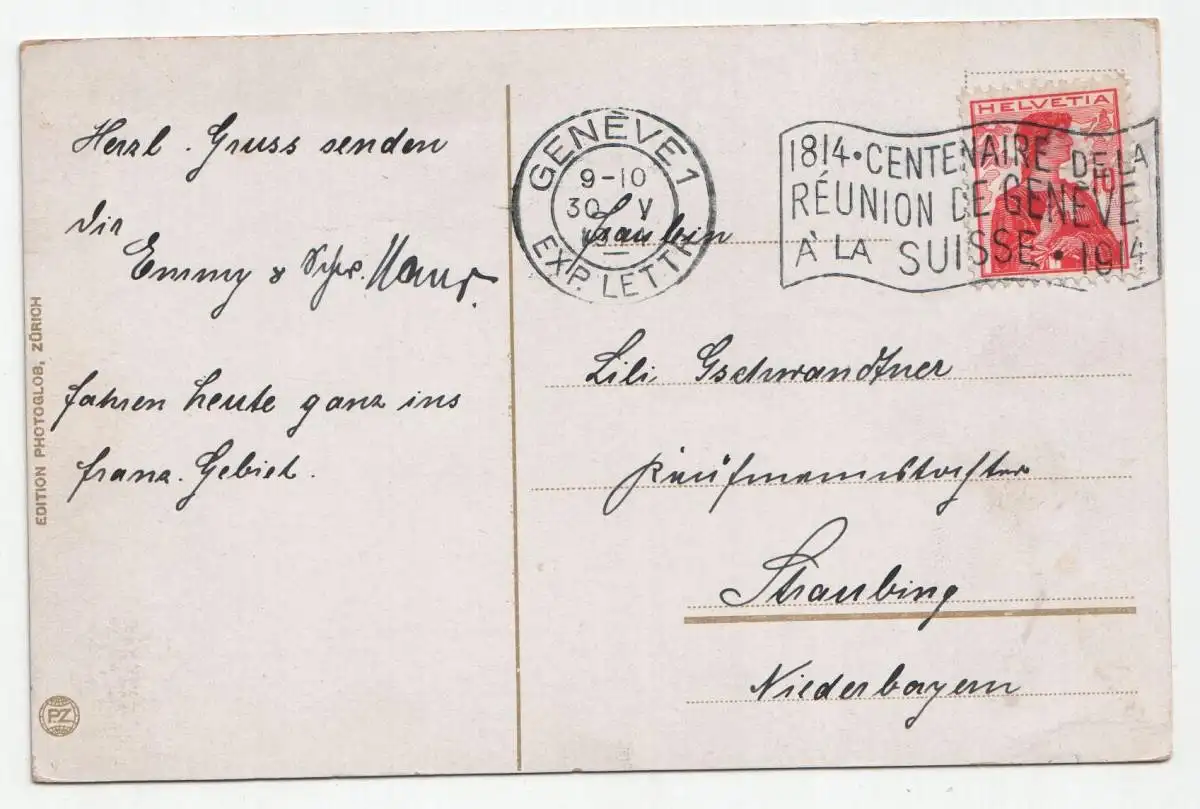 Herzl. Gruss senden
dir
Emmy &
fahren heute ganz ins
franz. Gebiet.
EDITION PHOTOGLOB, ZÜRICH
PZ
GENÈVE 1
9-10
30 V
EXP. LETTR
HELVETIA
10
1814 • CENTENAIRE DE LA
RÉUNION DE GENÈVE
À LA SUISSE • 1914
Fräulein
Lili Gschwandtner
Kaufmannstochter
Straubing
Niederbayern